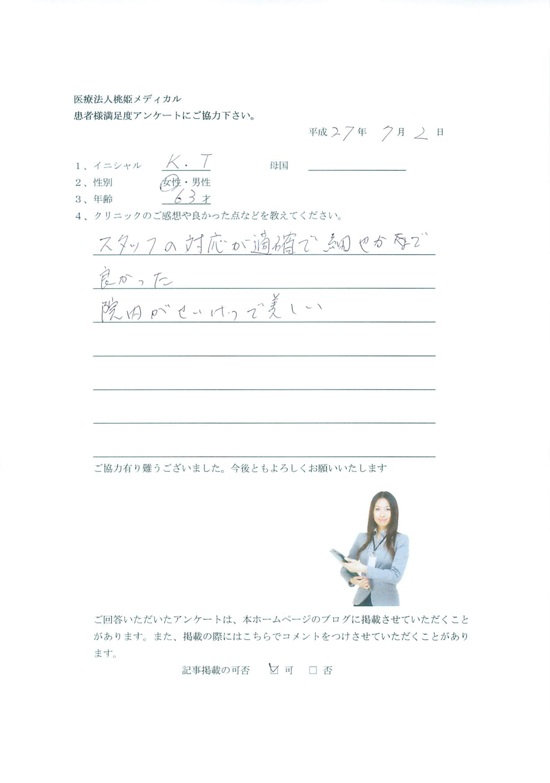 医療法人桃姫メディカル
患者様満足度アンケートにご協力下さい。
平成27年 7月 2日
1、イニシャル K.T 母国
2、性別 女性・男性
3、年齢 63才
4、クリニックのご感想や良かった点などを教えてください。
スタッフの対応が適確で細やかで
良かった
院内がせいけつで美しい
ご協力有り難うございました。今後ともよろしくお願いいたします
ご回答いただいたアンケートは、本ホームページのブログに掲載させていただくこと
があります。また、掲載の際にはこちらでコメントをつけさせていただくことがあり
ます。
記事掲載の可否 ☑ 可 □ 否